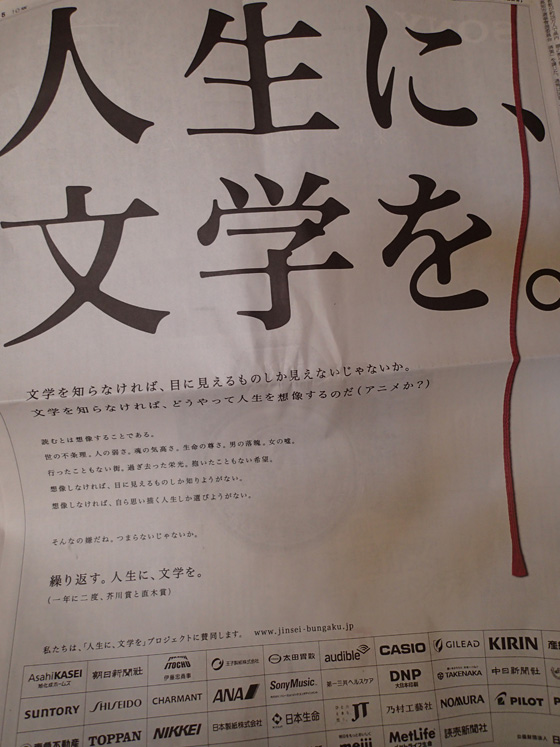 人生に、
文学を。
文学を知らなければ、目に見えるものしか見えないじゃないか。
文学を知らなければ、どうやって人生を想像するのだ(アニメか?)
読むとは想像することである。
世の不条理。人の弱さ。魂の気高さ。生命の尊さ。男の落魄。女の嘘。
行ったこともない街。過ぎ去った栄光。抱いたこともない希望。
想像しなければ、目に見えるものしか知りようがない。
想像しなければ、自ら思い描く人生しか選びようがない。
そんなの嫌だね。つまらないじゃないか。
繰り返す。人生に、文学を。
(一年に二度、芥川賞と直木賞)
私たちは、「人生に、文学を」プロジェクトに賛同します。 www.jinsei-bungaku.jp
AsahiKASEI 旭化成ホームズ 朝日新聞社 ITOCHU 伊藤忠商事 王子製紙株式会社 太田胃散 audible CASIO GILEAD KIRIN
SUNTORY SHISEIDO CHARMANT ANA Sony Music 第一三共ヘルスケア DNP 大日本印刷 TAKENAKA 中日新聞社
TOPPAN NIKKEI 日本製紙株式会社 日本生命 JT 乃村工藝社 NOMURA PILOT
meiji MetLife メットライフ生命 読売新聞社